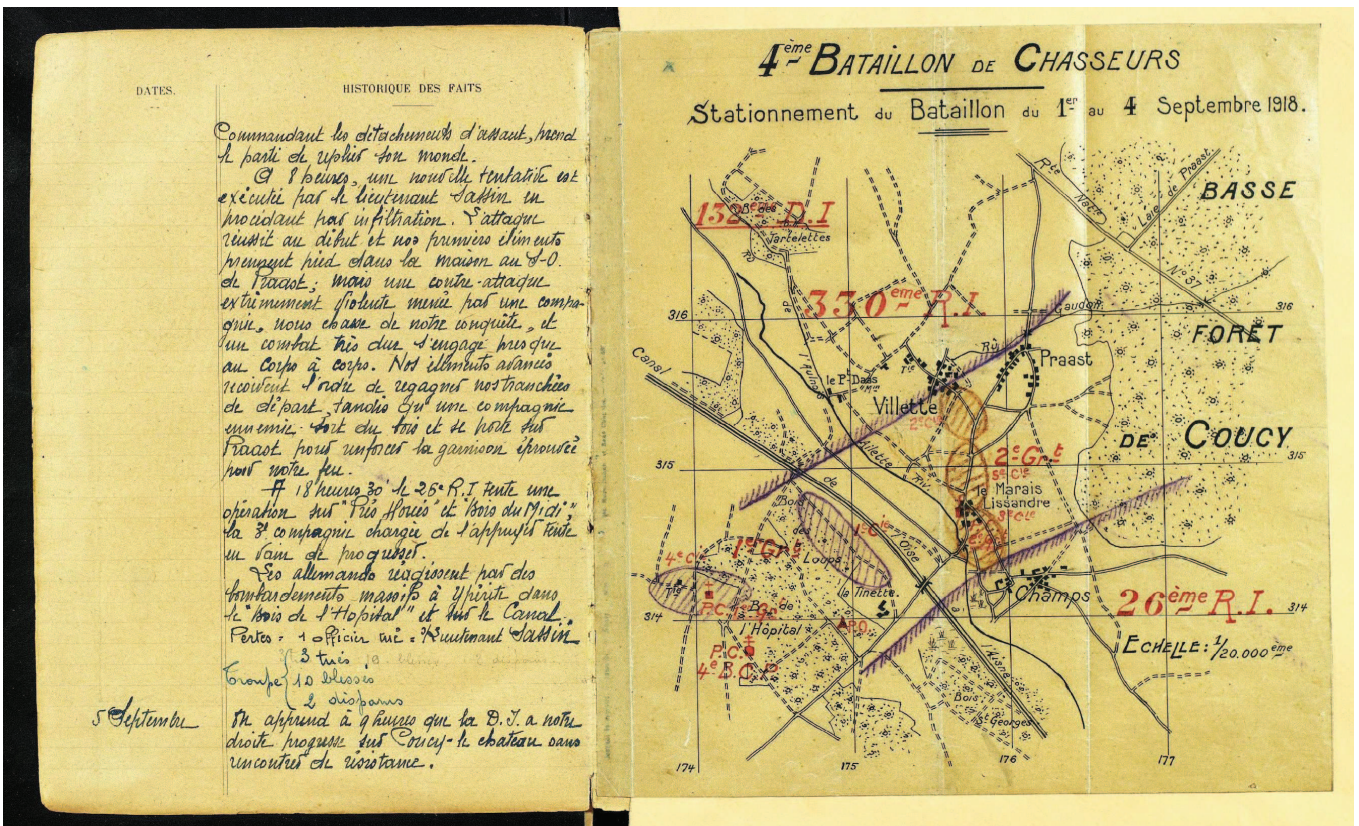 DATES.
HISTORIQUE DES FAITS
Commandant les détachements d'assaut, prend
le parti de replier son monde.
A 8 heures, une nouvelle tentative est
exécutée par le lieutenant Sassin en
procédant par infiltration. L'attaque
réussit au début et nos premiers éléments
prennent pied dans la maison au S-O.
de Praast ; mais une contre-attaque
extrêmement violente menée par une compa-
gnie, nous chasse de notre conquête, et
un combat très dur s'engage presque
au corps à corps. Nos éléments avancés
reçoivent l'ordre de regagner nos tranchées
de départ, tandis qu'une compagnie
ennemie sort du bois et se porte sur
Praast pour renforcer la garnison éprouvée
par notre feu.
A 18 heures 30 le 26e R.I tente une
opération sur "Prés " et "Bois du Midi"
la 3e compagnie chargée de l'appuyer tente
en vain de progresser.
Les allemands réagissent par des
bombardements massifs à ypérite dans
le "Bois de l'Hôpital" et sur le Canal.
Pertes = 1 officier tué = Lieutenant Sassin
Troupe { 3 tués
10 blessés
2 disparus
5 Septembre
On apprend à 9 heures que la D.I. a notre
droite progresse sur Coucy-le-chateau sans
rencontrer de résistance.
4ème BATAILLON DE CHASSEURS
Stationnement du Bataillon du 1er au 4 Septembre 1918.
132eme D.I
Bs des
Tartelettes
Rte Natle
Laie de Praast.
BASSE
N° 37
330eme R.I.
316
316
Gaudon
FORÊT
Canal
l'Aulnois
le Pt Daas
Tie
Ry
Praast
Villette
2e Cie
DE COUCY
315
315
Villette
Riv.
2e Grt
5e Cie
le Marais
Lissandre
3e Cie
de
l'Oise
Bois
des
Loups
1e Cie
1e Grt
4e Cie
Tie
P.C. 1e Gr
la Tinette
Champs
26ème R.I.
314
314
Bs de
l'Hôpital
P.O.
P.C.
4e B.C.P.
ECHELLE: 1/20.000ème
à
l'Aisne
Bois
St Georges
174
175
176
177